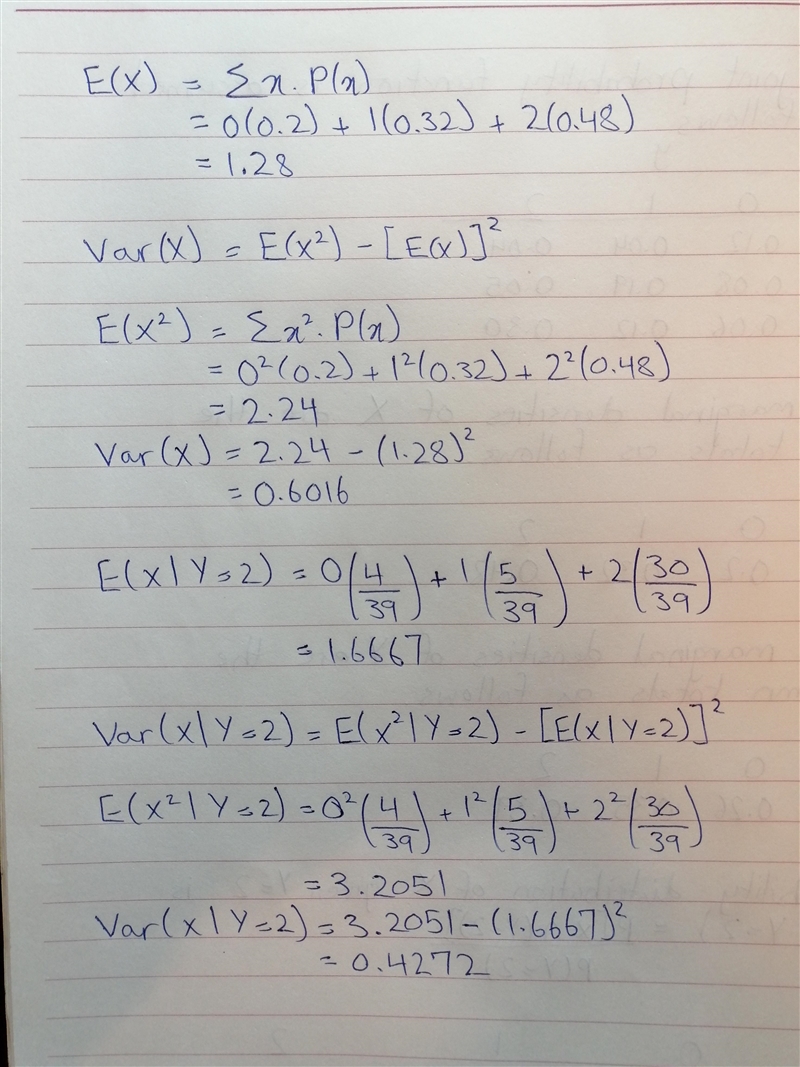 E(X) = Σ x. P(x)
= 0(0.2) + 1(0.32) + 2(0.48)
= 1.28
Var(X) = E(X²) - [E(X)]²
E(X²) = Σ x². P(x)
= 0²(0.2) + 1²(0.32) + 2²(0.48)
= 2.24
Var(X) = 2.24 - (1.28)²
= 0.6016
E(X|Y=2) = 0(4/39) + 1(5/39) + 2(30/39)
= 1.6667
Var(X|Y=2) = E(X²|Y=2) - [E(X|Y=2)]²
E(X²|Y=2) = 0²(4/39) + 1²(5/39) + 2²(30/39)
= 3.2051
Var(X|Y=2) = 3.2051 - (1.6667)²
= 0.4272